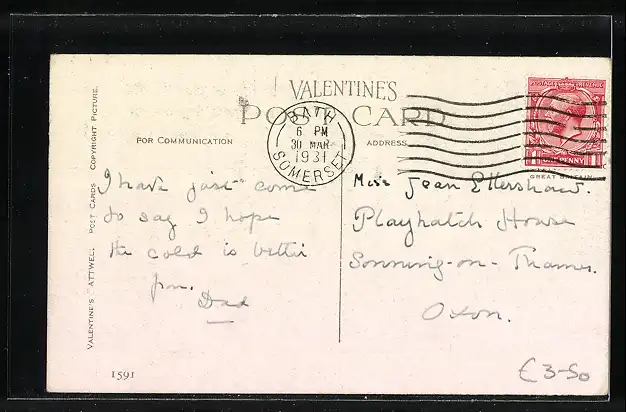 VALENTINE'S
POST CARD
FOR COMMUNICATION
ADDRESS
BATH
6 PM
30 MAR
1931
SOMERSET
POSTAGE REVENUE
ONE PENNY
GREAT BRITAIN.
VALENTINE'S "ATTWELL" POST CARDS COPYRIGHT PICTURE.
I have just come
to say I hope
the cold is better
from
Dad
Miss Jean Ettershaw.
Playhatch House
Sonning-on-Thames.
Oxon.
1591
£3-50